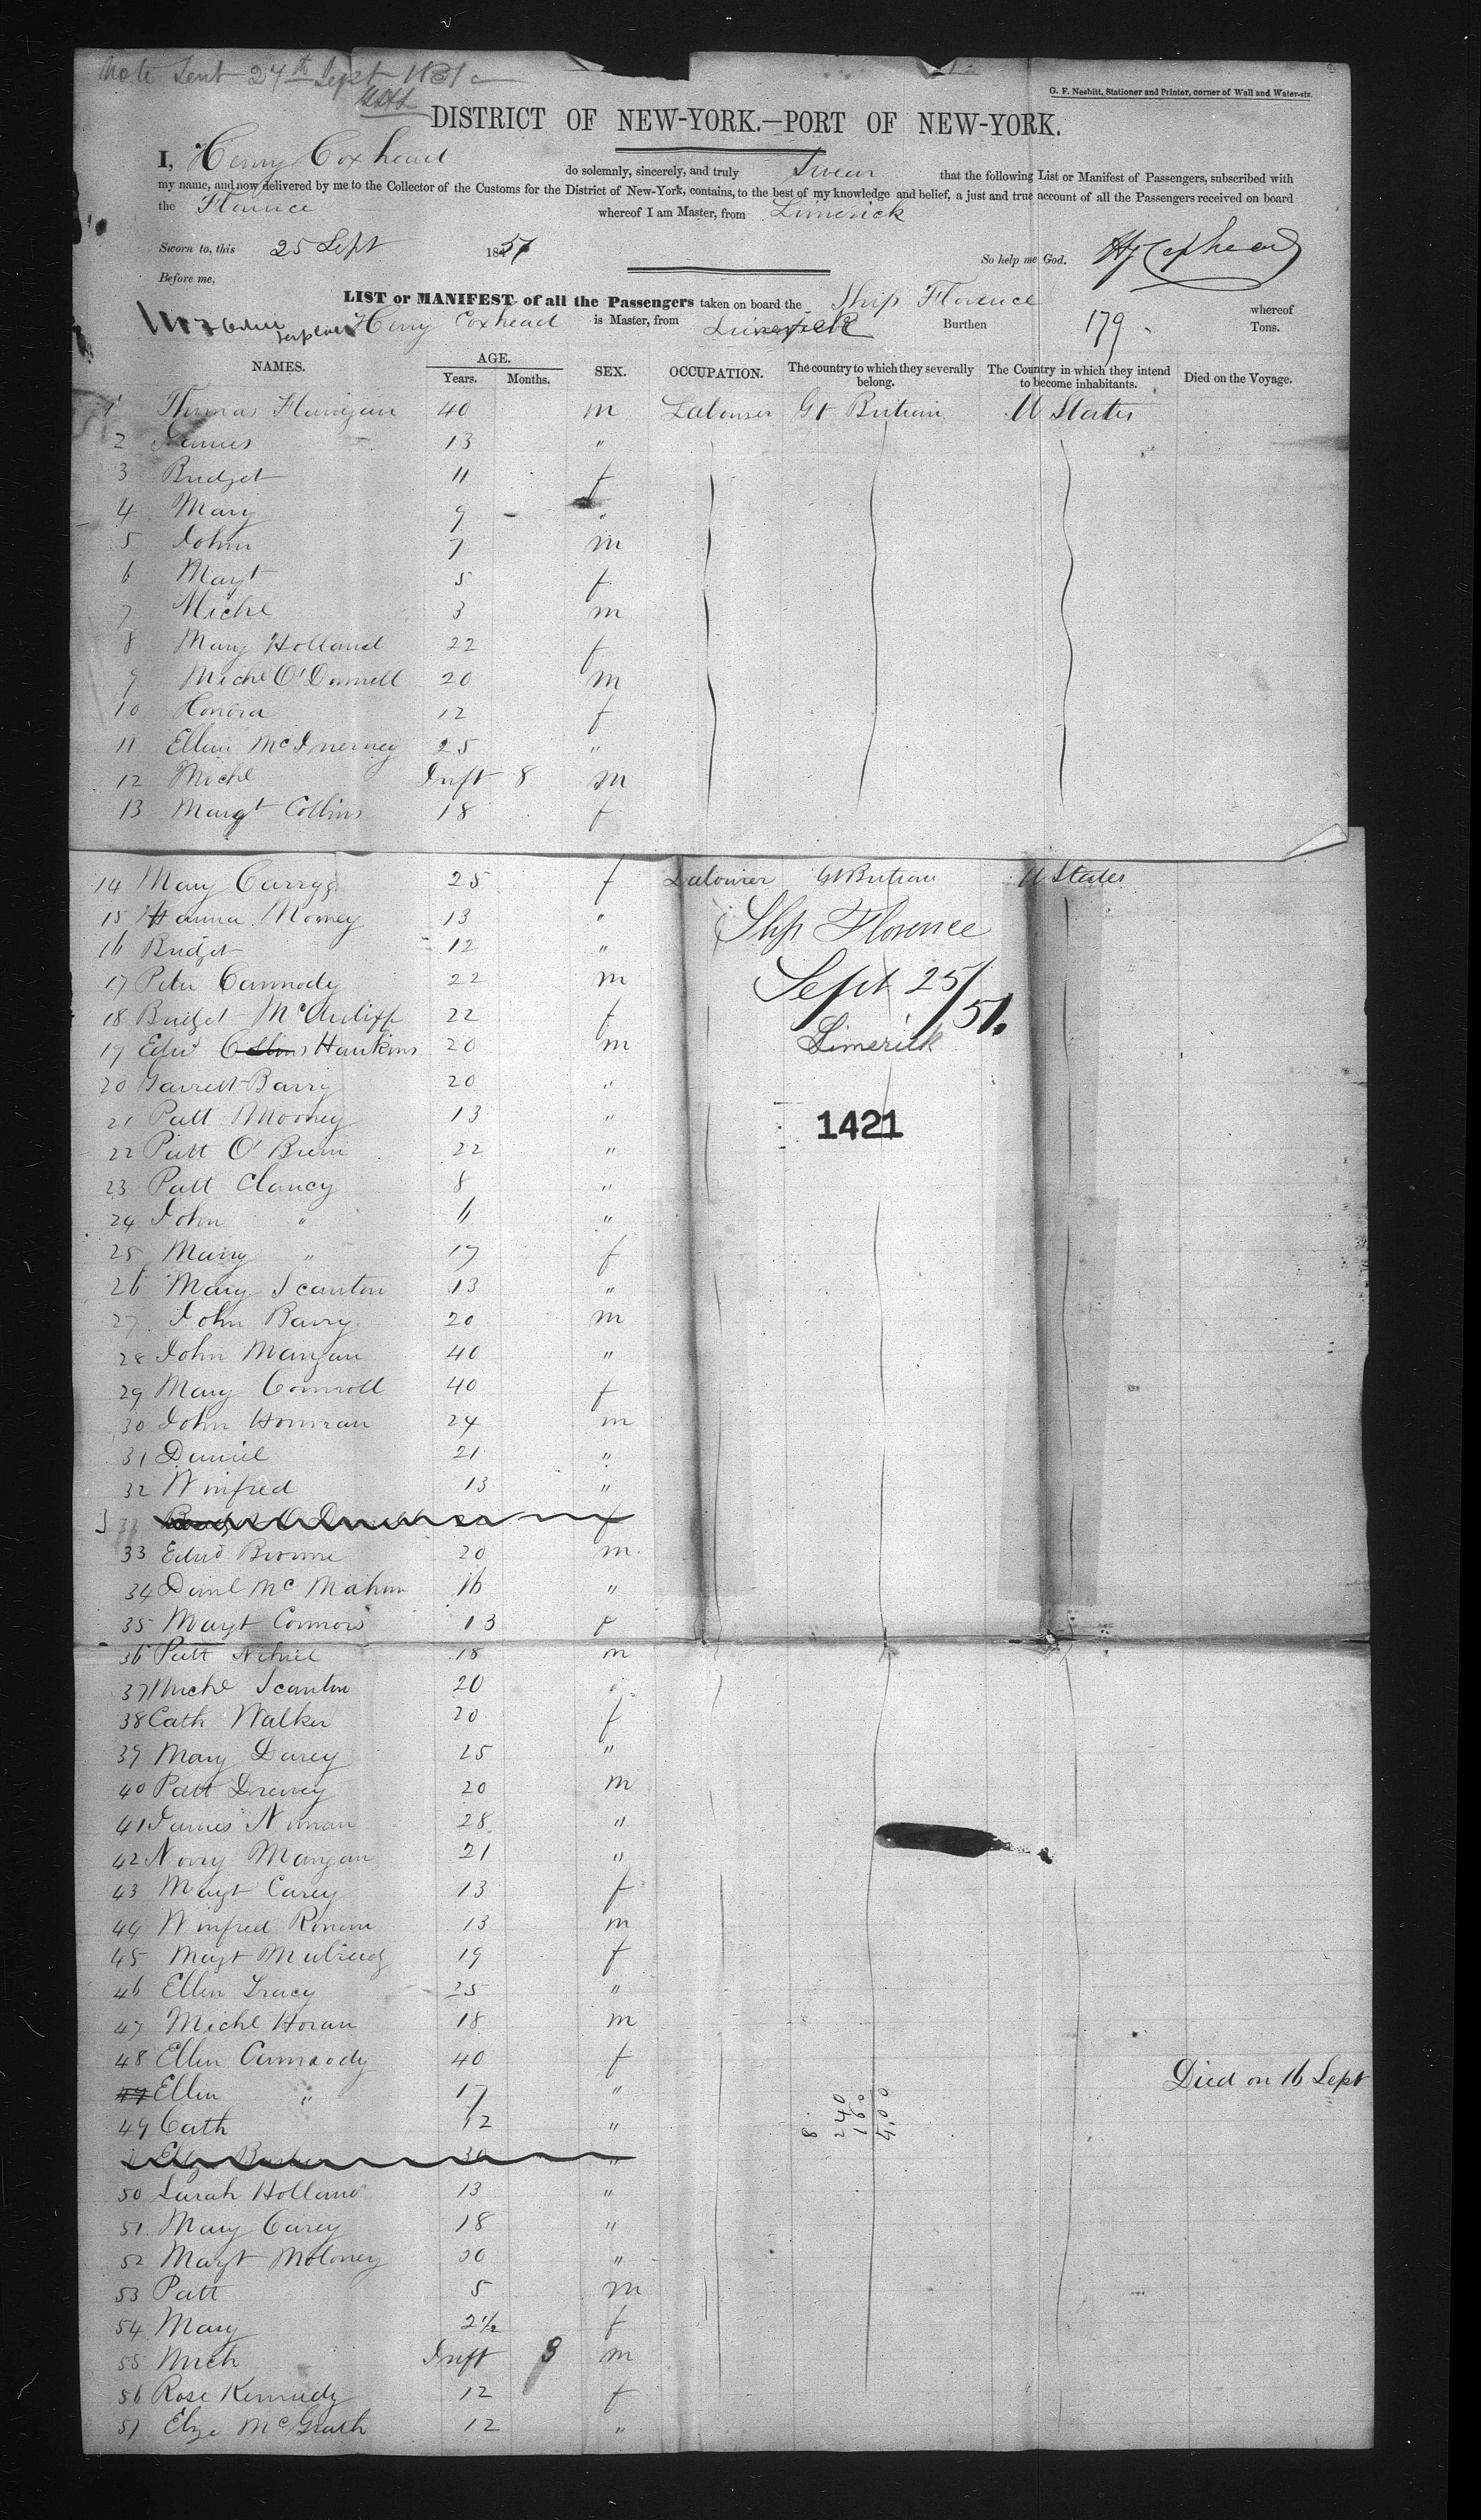 Note Sent 24th Sept 1851
G. F. Nesbitt, Stationer and Printer, corner of Wall and Water-sts.
DISTRICT OF NEW-YORK.—PORT OF NEW-YORK.
I, Henry Coxhead do solemnly, sincerely, and truly Swear that the following List or Manifest of Passengers, subscribed with
my name, and now delivered by me to the Collector of the Customs for the District of New-York, contains, to the best of my knowledge and belief, a just and true account of all the Passengers received on board
the Florence whereof I am Master, from Limerick
Sworn to, this 25 Sept 1851 So help me God. Hy Coxhead
Before me,
LIST or MANIFEST of all the Passengers taken on board the Ship Florence whereof
Henry Coxhead is Master, from Limerick Burthen 179 Tons.
NAMES. AGE. Years. Months. SEX. OCCUPATION. The country to which they severally belong. The Country in which they intend to become inhabitants. Died on the Voyage.
1 Thomas Flanigan 40 m Labourer Gt Britain U States
2 James 13 "
3 Bridget 11 f
4 Mary 9 "
5 John 7 m
6 Margt 5 f
7 Michl 3 m
8 Mary Holland 22 f
9 Michl O'Donnell 20 m
10 Honora 12 f
11 Ellen McInerney 25 "
12 Michl Inft 8 m
13 Margt Collins 18 f
14 Mary Carrgg 25 f Labourer Gt Britain U States
15 Hanna Mooney 13 "
16 Bridget 12 "
17 Peter Carmody 22 m
18 Bridget McAuliff 22 f
19 Edwd Collins Hawkins 20 m
20 Garrett Barry 20 "
21 Patt Mooney 13 "
22 Patt O'Brien 22 "
23 Patt Clancy 8 "
24 John " 11 "
25 Mary " 17 f
26 Mary Scanlon 13 "
27 John Barry 20 m
28 John Mangan 40 "
29 Mary Connoll 40 f
30 John Honoran 24 m
31 Daniel 21 "
32 Winfred 13 "
33 Edwd Browne 20 m
34 Danl McMahon 16 "
35 Margt Connors 13 f
36 Patt Nihill 18 m
37 Michl Scanlon 20 "
38 Cath Walker 20 f
39 Mary Darcy 25 "
40 Patt Drewey 20 m
41 James Noonan 28 "
42 Norry Mangan 21 "
43 Margt Carey 13 f
44 Winfred Ronan 13 m
45 Margt Mulready 19 f
46 Ellen Tracy 25 "
47 Michl Horan 18 m
48 Ellen Carmoody 40 f
49 Ellen " 17 " Died on 16 Sept
49 Cath 12 "
30 "
50 Sarah Holland 13 "
51 Mary Carey 18 "
52 Margt Moloney 30 "
53 Patt 5 m
54 Mary 2½ f
55 Mich Inft 9 m
56 Rose Kennedy 12 f
57 Elize McGrath 12 "
Ship Florence
Sept 25/51.
Limerick
1421